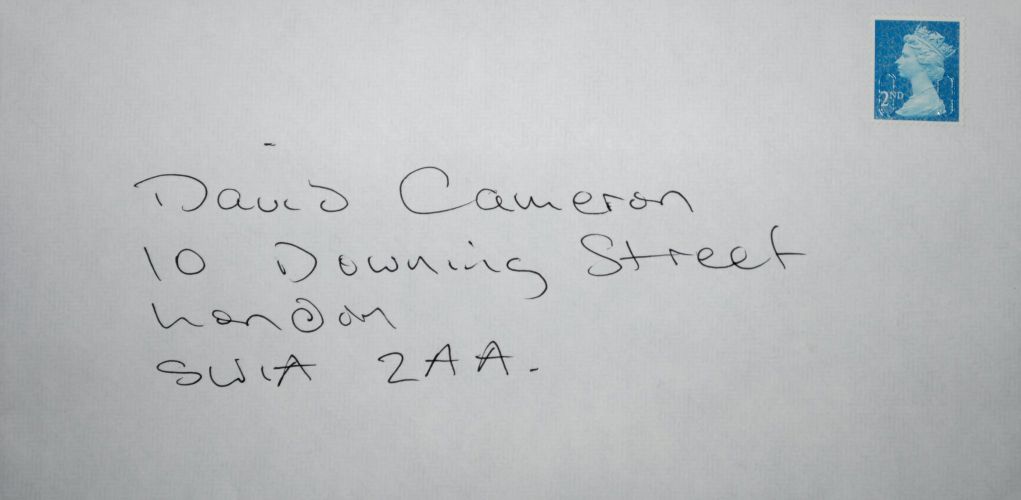 2ND
David Cameron
10 Downing Street
London
SW1A 2AA.